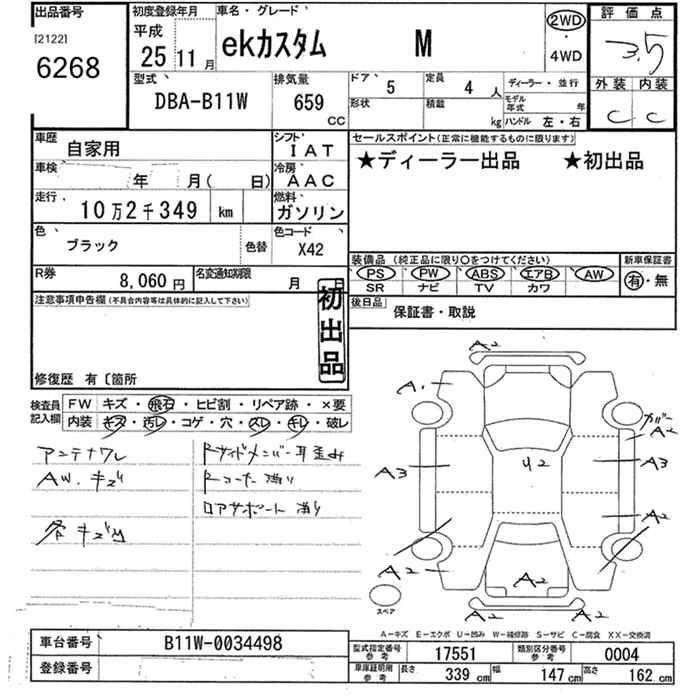 出品番号
[2122]
6268
初度登録年月
平成
25 11月
車名・グレード
ekカスタム M
2WD
・
4WD
評価点
3.5
外装 内装
C C
型式
DBA-B11W
排気量
659
CC
ドア 5
形状
定員 4 人
積載 kg
ディーラー・並行
モデル年式 年
ハンドル 左・右
車歴 自家用
シフト IAT
車検 年 月( 日)
冷房 AAC
走行 10万2千349 km
燃料 ガソリン
色 ブラック 色替
色コード X42
R券 8,060円
名変通知期限 月 日
セールスポイント(正常に機能するものに限ります)
★ディーラー出品 ★初出品
装備品(純正品に限り○をつけてください)
PS PW ABS エアB AW
SR ナビ TV カワ
新車保証書
有・無
後日品
保証書・取説
注意事項申告欄(不具合内容等は具体的に記入して下さい)
初出品
修復歴 有〔箇所
検査員記入欄
FW キズ・飛石・ヒビ割・リペア跡・×要
内装 キズ・汚レ・コゲ・穴・スレ・キレ・破レ
アンテナワレ
AW.キズ
各キズ凹
Rサイドメンバー耳歪み
Rコーナー凹り
ロアサポート凹り
A2
A1
ガバー
A2
A3
U2
A3
A2
A2
A2
A2
スペア
A-キズ E-エクボ U-凹み W-補修跡 S-サビ C-腐食 XX-交換済
車台番号 B11W-0034498
登録番号
型式指定番号参考 17551
類別区分番号参考 0004
車庫証明用参考 長さ 339cm 幅 147cm 高さ 162cm